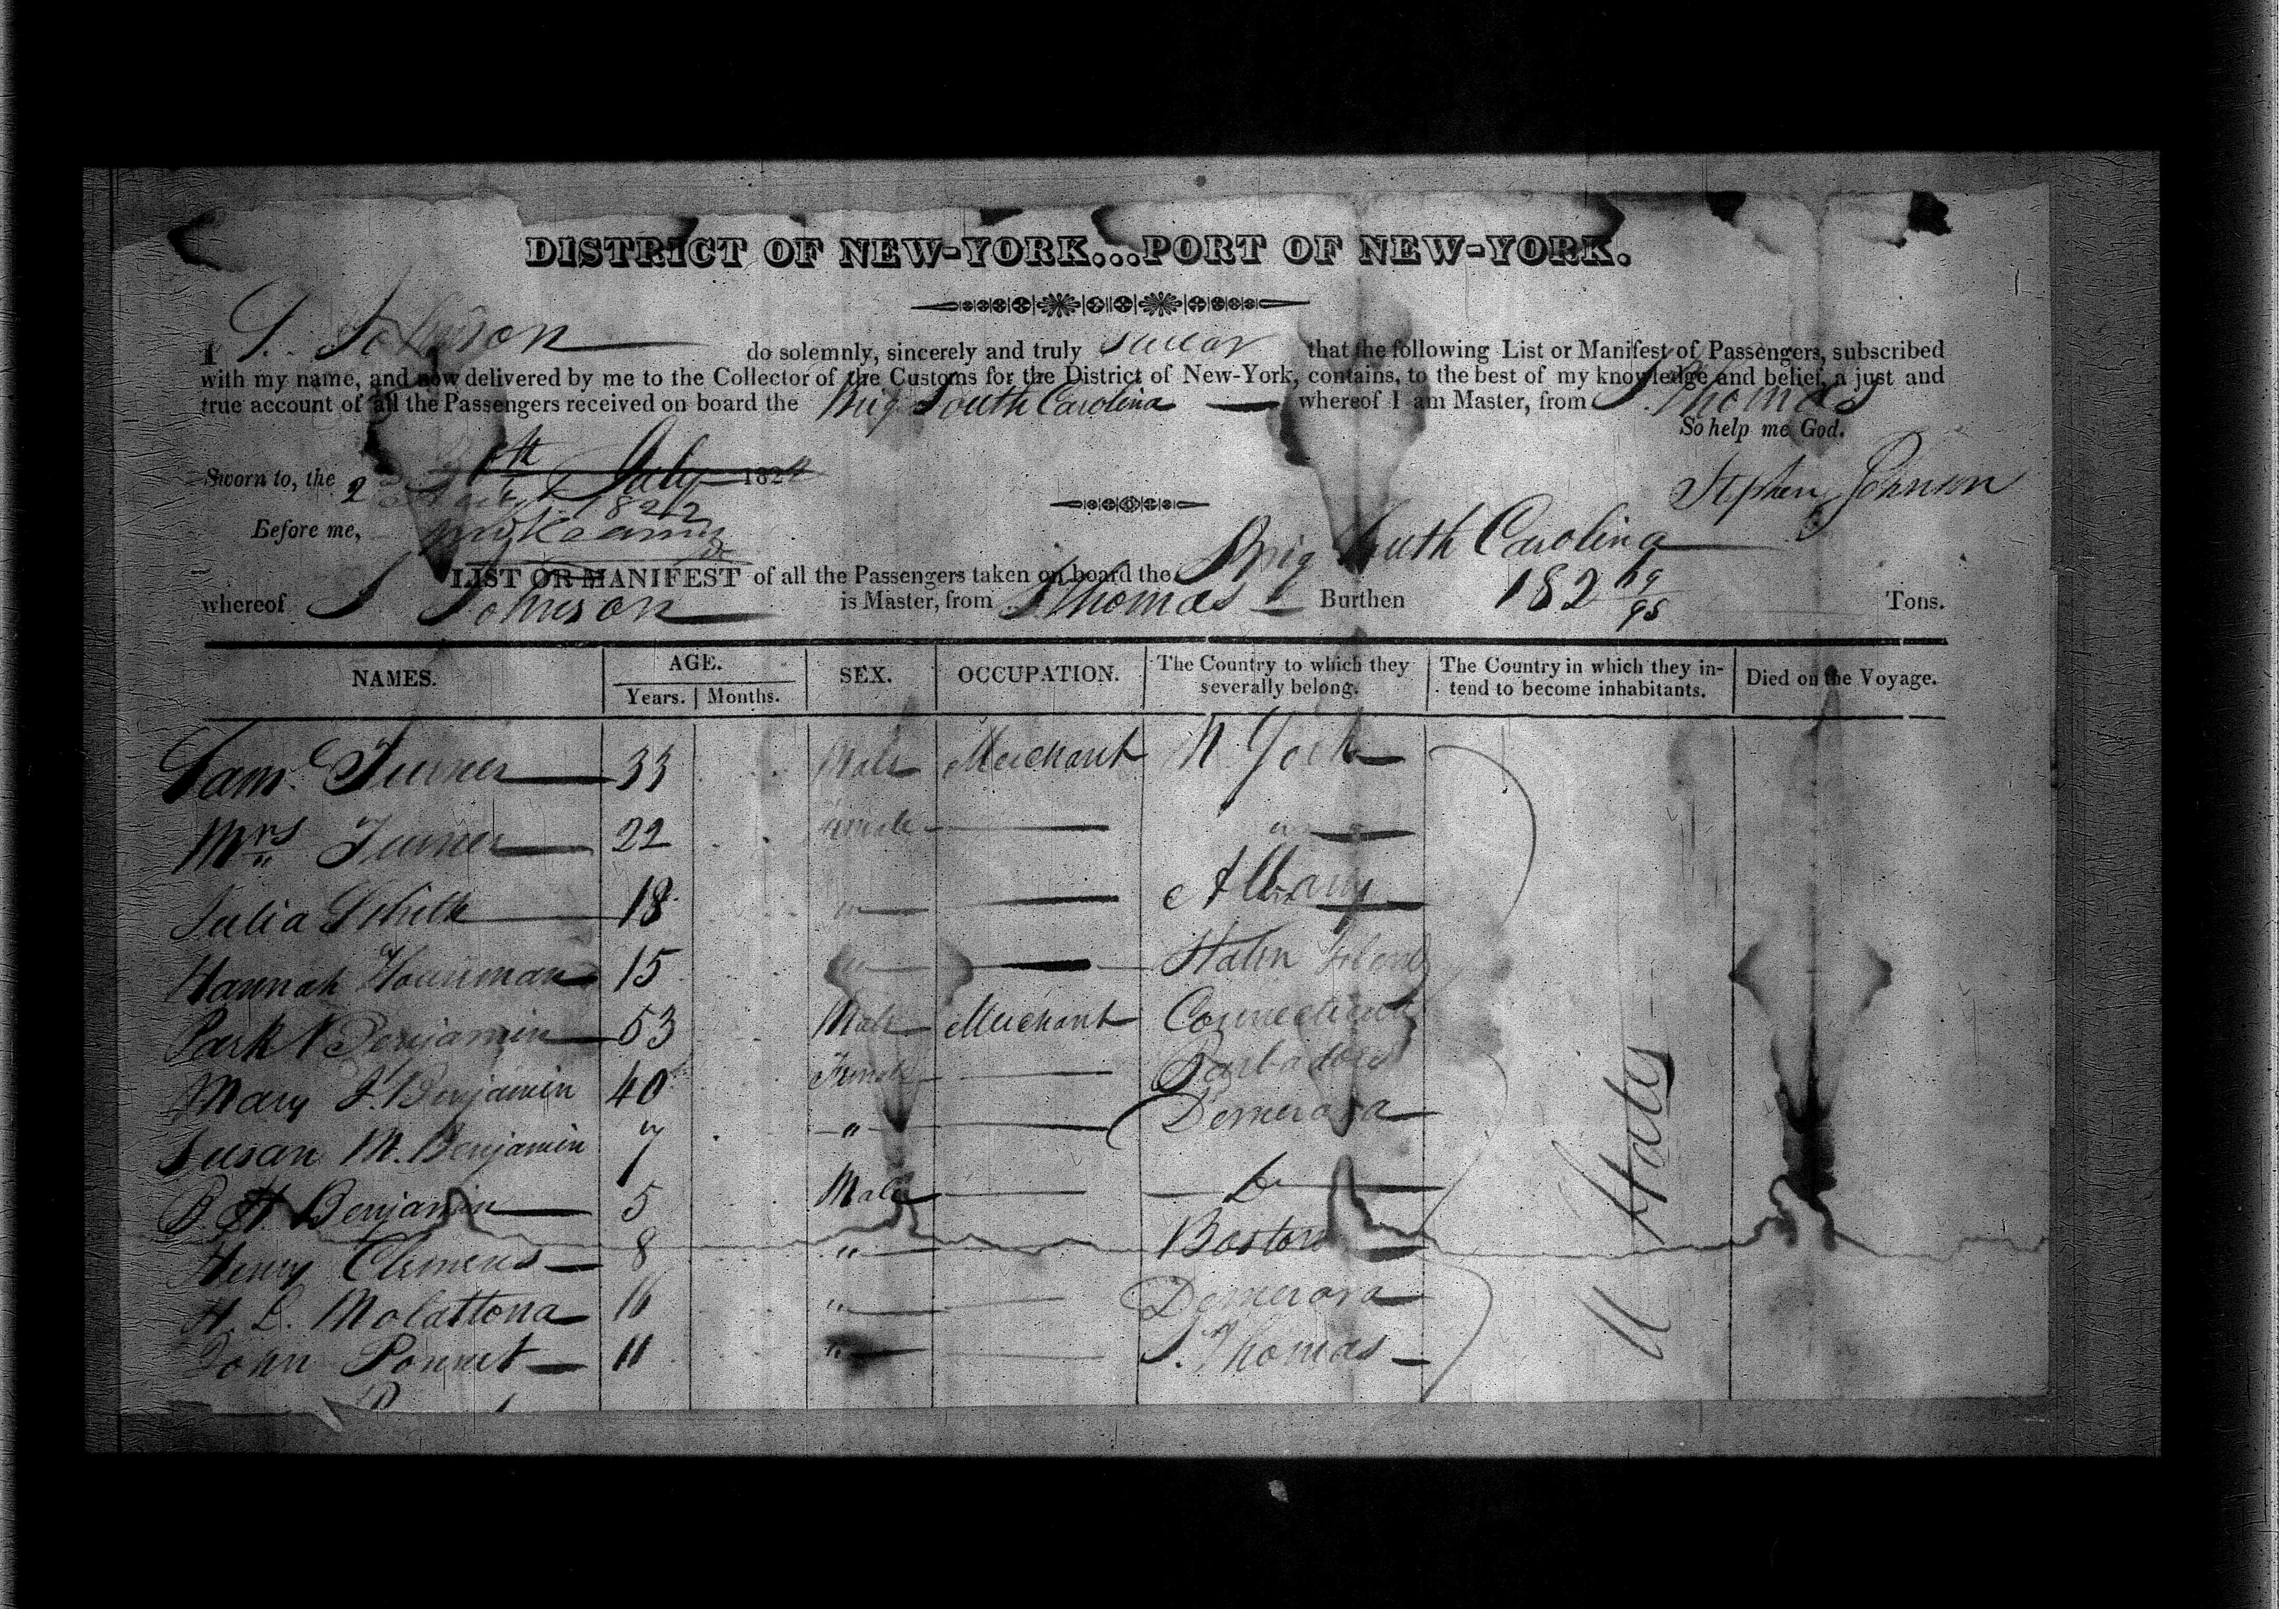 DISTRICT OF NEW-YORK...PORT OF NEW-YORK.
I S. Johnson do solemnly, sincerely and truly swear that the following List or Manifest of Passengers, subscribed
with my name, and now delivered by me to the Collector of the Customs for the District of New-York, contains, to the best of my knowledge and belief, a just and
true account of all the Passengers received on board the Brig South Carolina whereof I am Master, from St Thomas
So help me God.
Sworn to, the July 182
1822
Stephen Johnson
Before me,
LIST OR MANIFEST of all the Passengers taken on board the Brig South Carolina
whereof S Johnson is Master, from St Thomas Burthen 182 Tons.
NAMES. AGE. SEX. OCCUPATION. The Country to which they severally belong. The Country in which they intend to become inhabitants. Died on the Voyage.
Years. Months.
Saml Turner 33 Male Merchant N York
Mrs Turner 22 Female "
Julia White 18 " Albany
Hannah Houseman 15 " Staten Island
Park Benjamin 53 Male Merchant Connecticut
Mary J. Benjamin 40 Female Barbadoes
Susan M. Benjamin 7 " Demerara
B H Benjamin 5 Male Do
Henry Clemens 8 " Boston
H. L. Molattona 16 " Demerara
John Ponnet 11 " St Thomas
U States